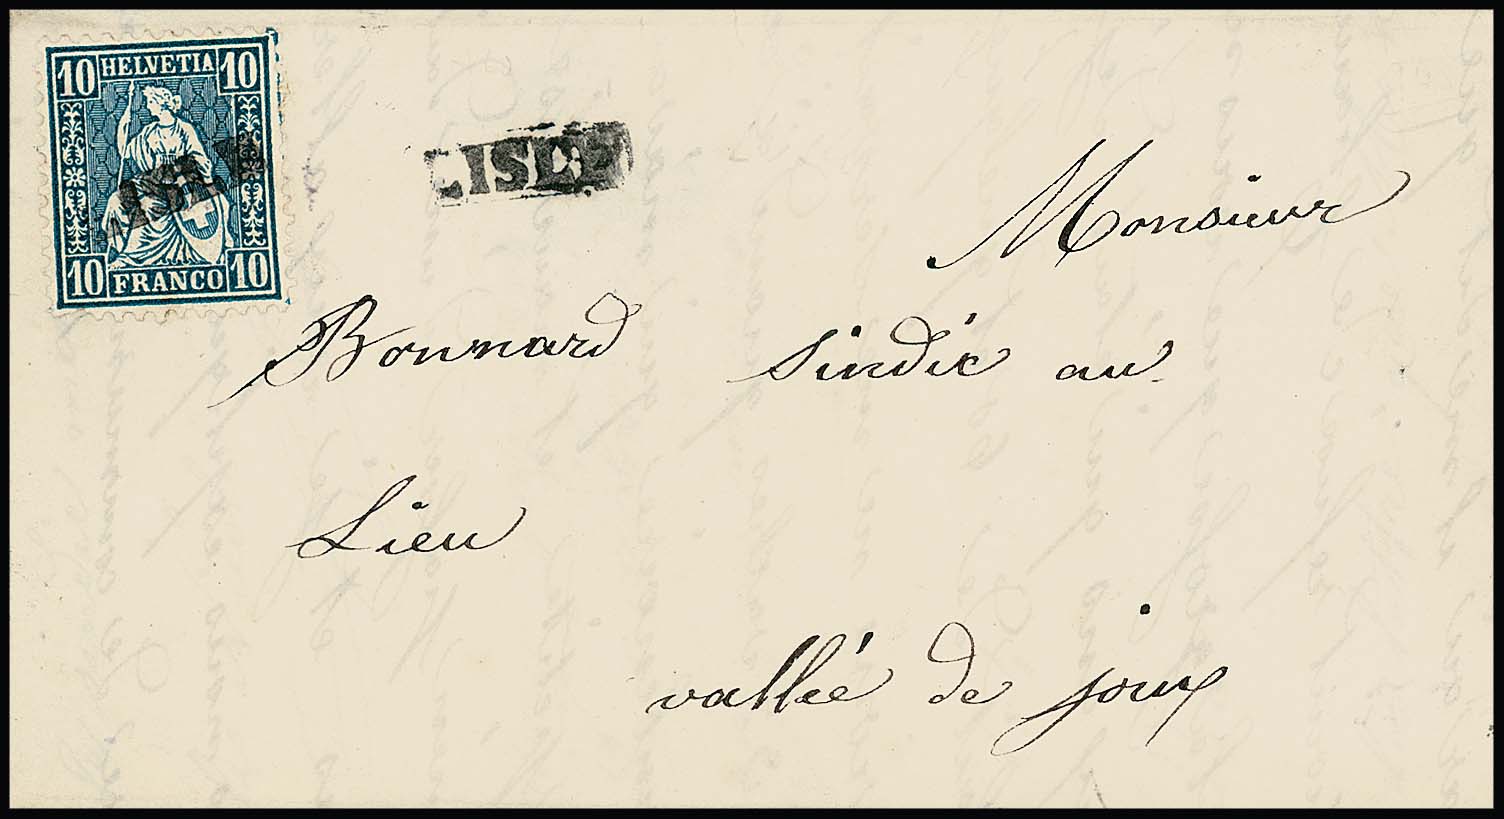 10 HELVETIA 10
10 FRANCO 10
Monsieur
Bonnard sindic au
Lieu
vallée de joux